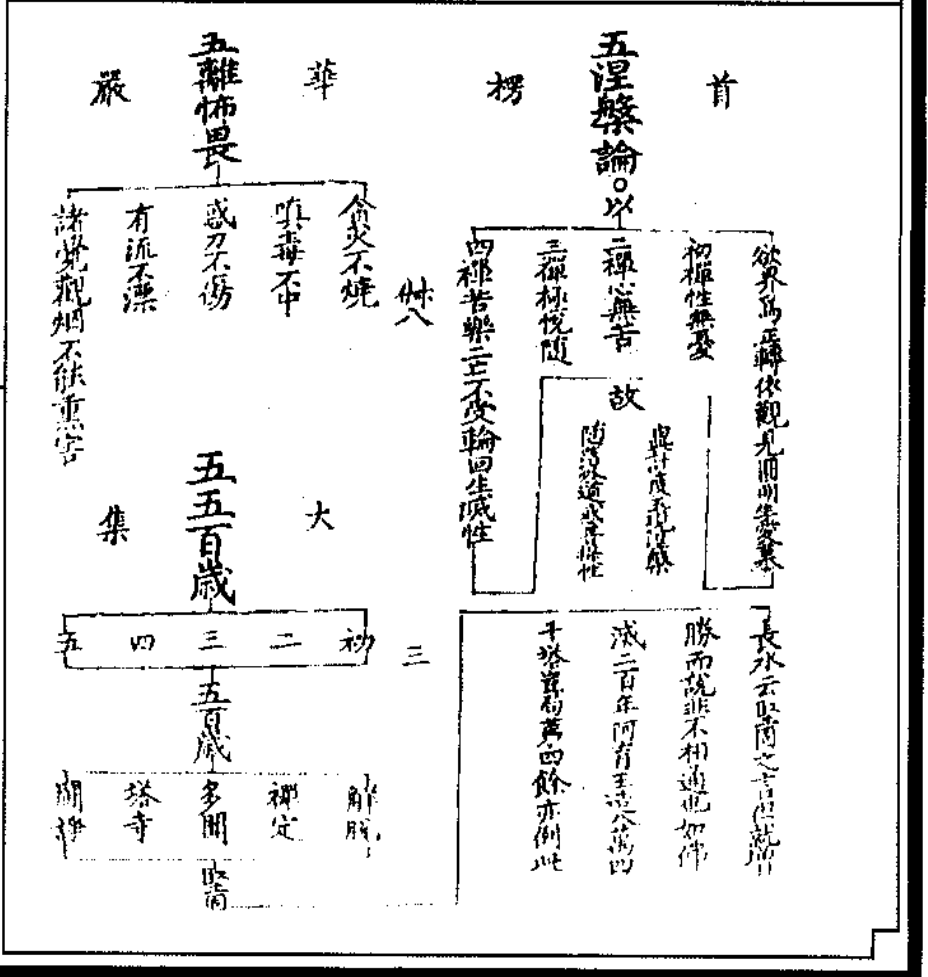 首楞
五涅槃論。以
欲界為正轉依觀見圓明生愛慕
初禪性無憂
二禪心無苦
三禪極悅隨
四禪苦樂二亡不受輪回生滅性
故
長水云堅固之言但就
勝而說非不相通也如佛
滅二百年阿育王造八萬四
千塔豈局第四餘亦例此
華嚴
五離怖畏
貪火不燒
嗔毒不中
惑刀不傷
有流不漂
諸覺觀烟不能熏害
卅八
大集
五五百歲
初
二
三
四
五
三
五百歲
解脫
禪定
多聞
塔寺
鬭諍
堅固